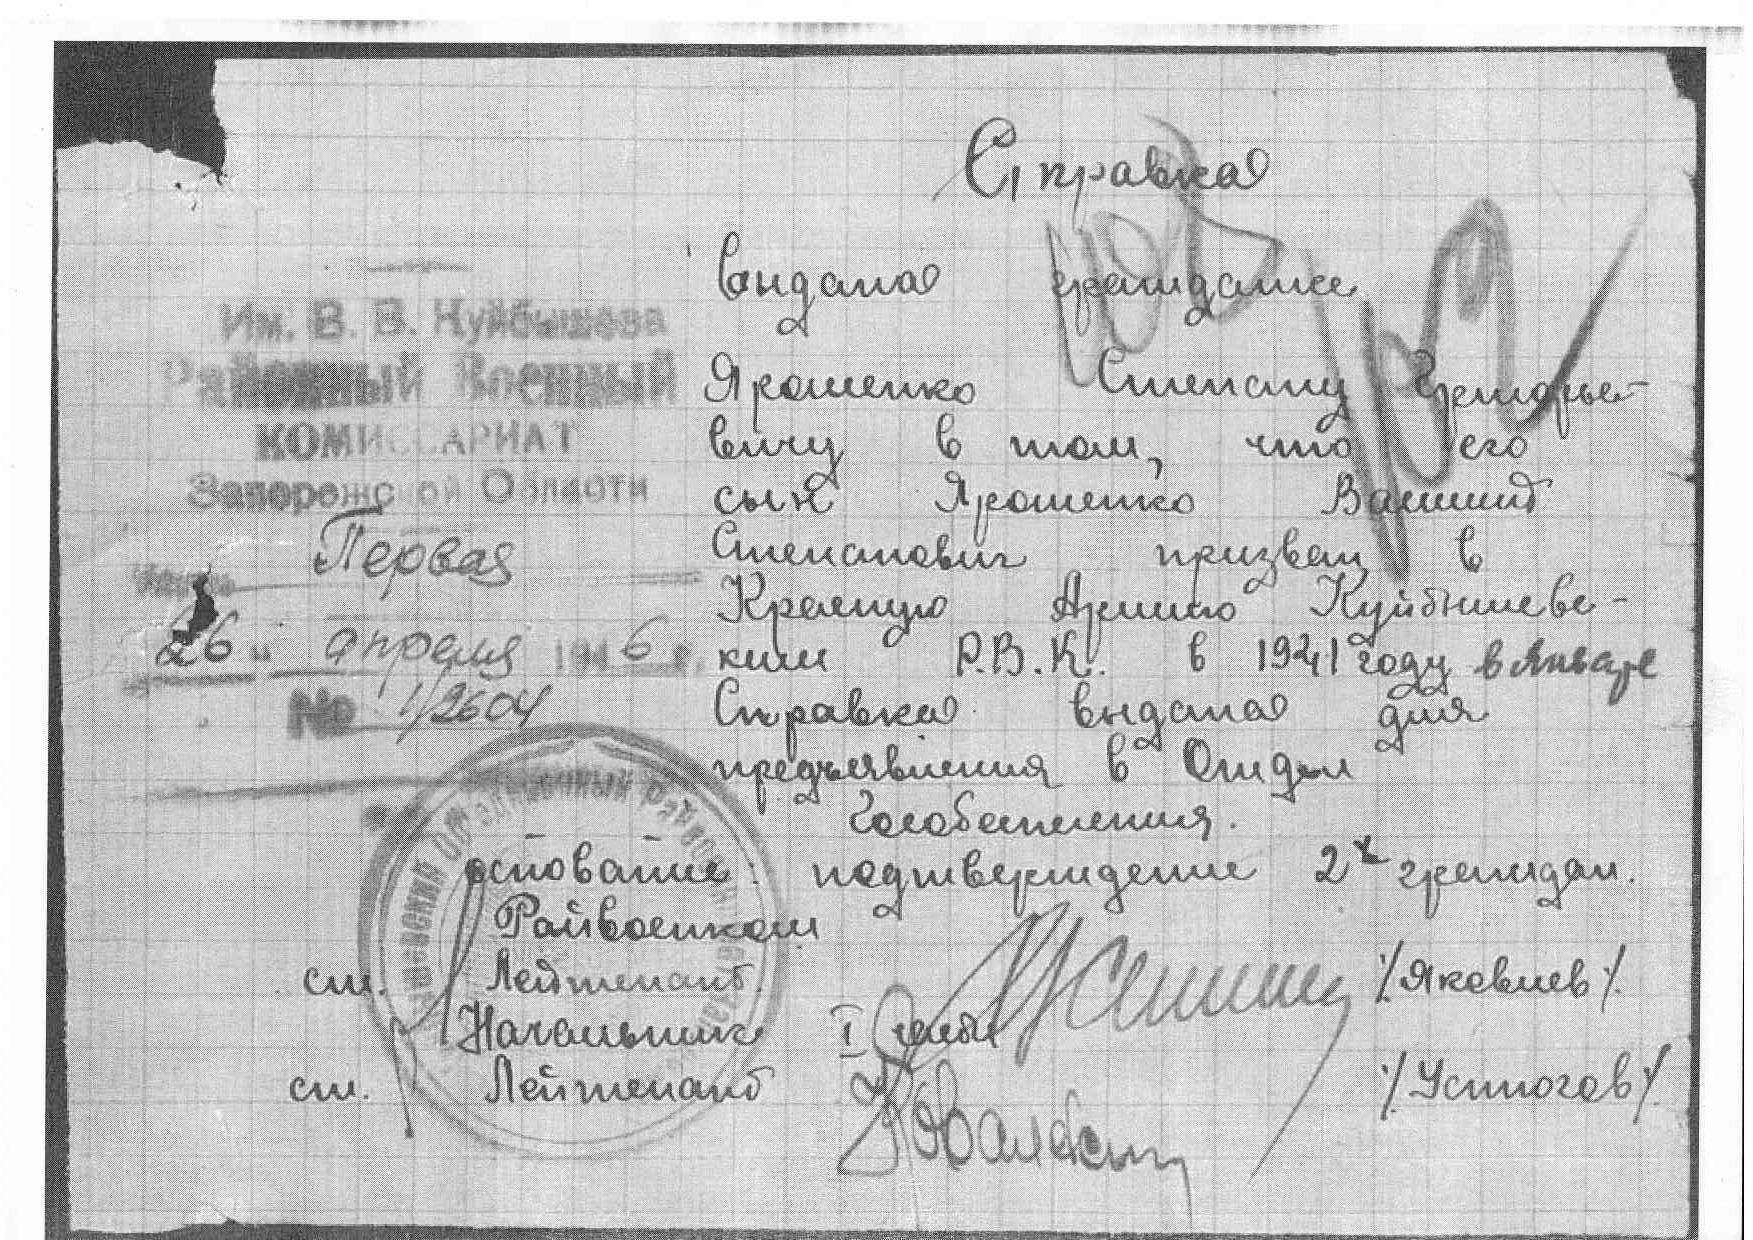 Справка
Им. В. В. Куйбышева
Районный Военный
КОМИССАРИАТ
Запорожской Области
Первая
Часть
26 " апреля 1946 г.
№ 1/2604
выдана гражданке
Ярошенко Степану Григорье-
вичу в том, что его
сын Ярошенко
Степанович призван в
Красную Армию Куйбышевс-
ким Р.В.К. в 1941 году в Январе
Справка выдана для
предъявления в Отдел
Гособеспечения.
основание: подтверждение 2х граждан.
Райвоенком
ст. Лейтенант. /Яковлев/.
Начальник I части
ст. Лейтенант /Устюгов/.